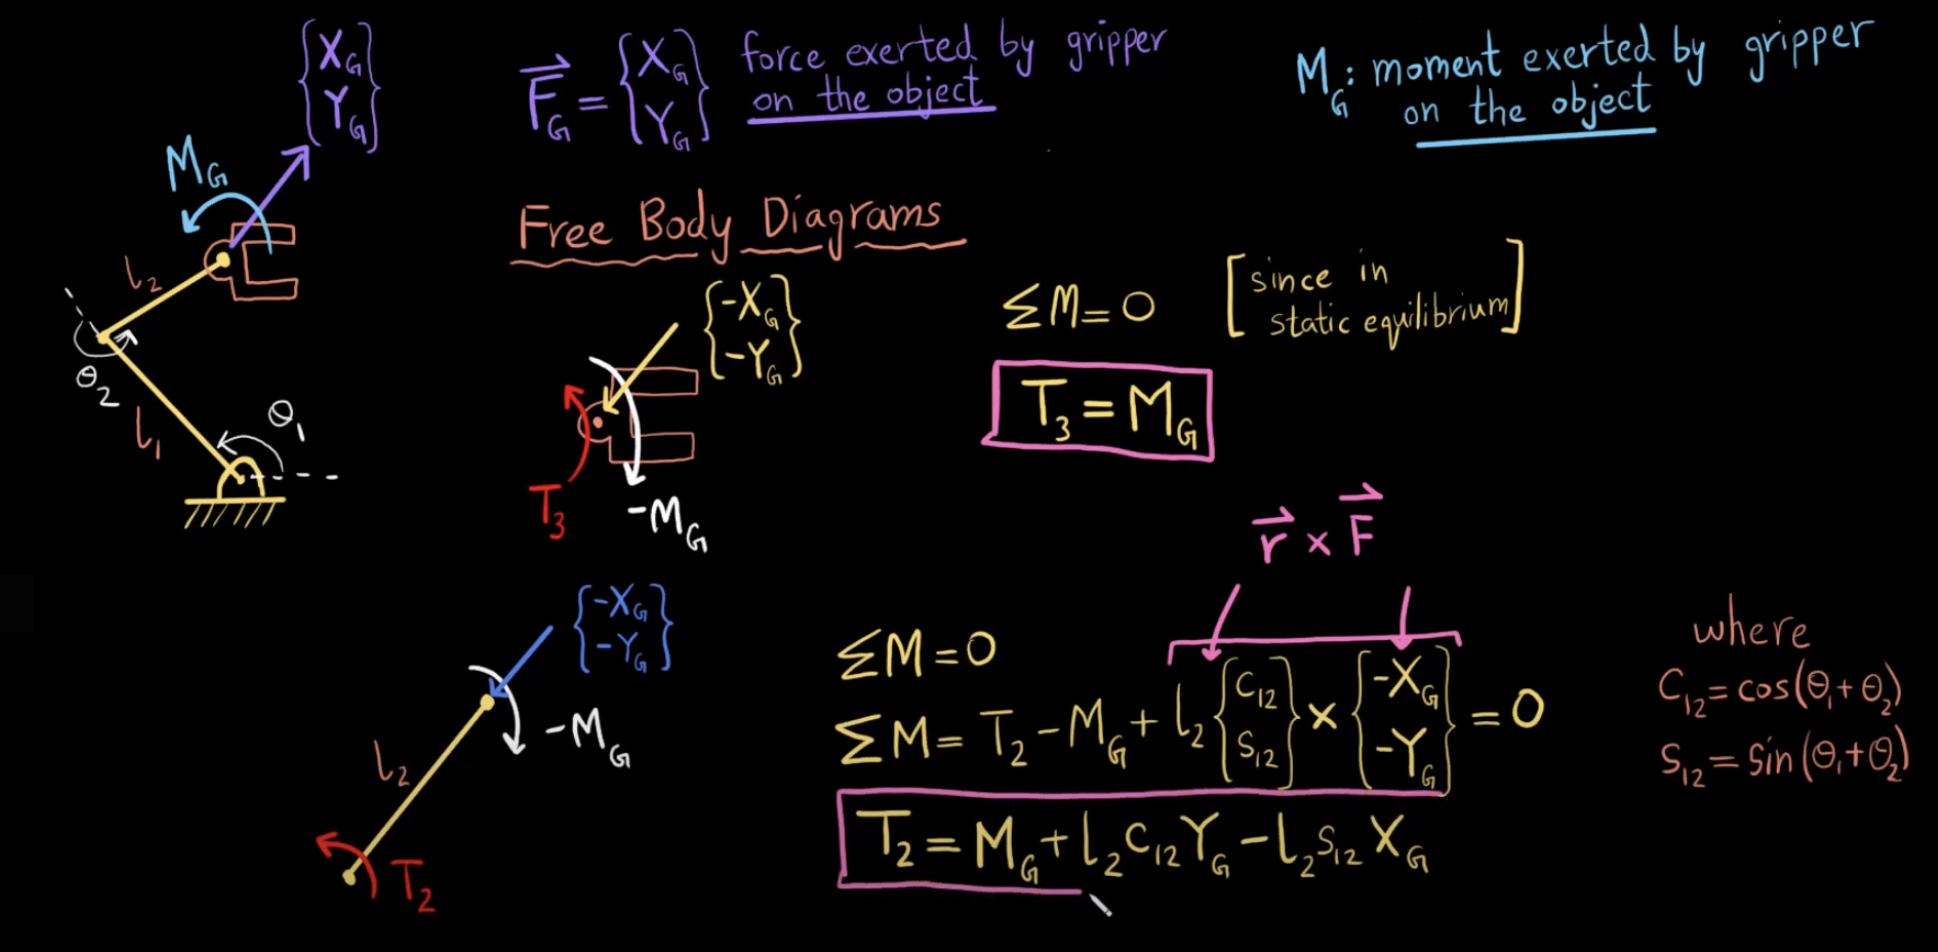 {X_G
Y_G}
F_G = {X_G
Y_G} force exerted by gripper
on the object
M_G: moment exerted by gripper
on the object
M_G
l_2
θ_2
l_1
θ_1
Free Body Diagrams
{-X_G
-Y_G}
T_3
-M_G
ΣM = 0
[since in
static equilibrium]
T_3 = M_G
r × F
{-X_G
-Y_G}
-M_G
l_2
T_2
ΣM = 0
ΣM = T_2 - M_G + l_2 {C_12
S_12} × {-X_G
-Y_G} = 0
T_2 = M_G + l_2 C_12 Y_G - l_2 S_12 X_G
where
C_12 = cos(θ_1 + θ_2)
S_12 = sin(θ_1 + θ_2)